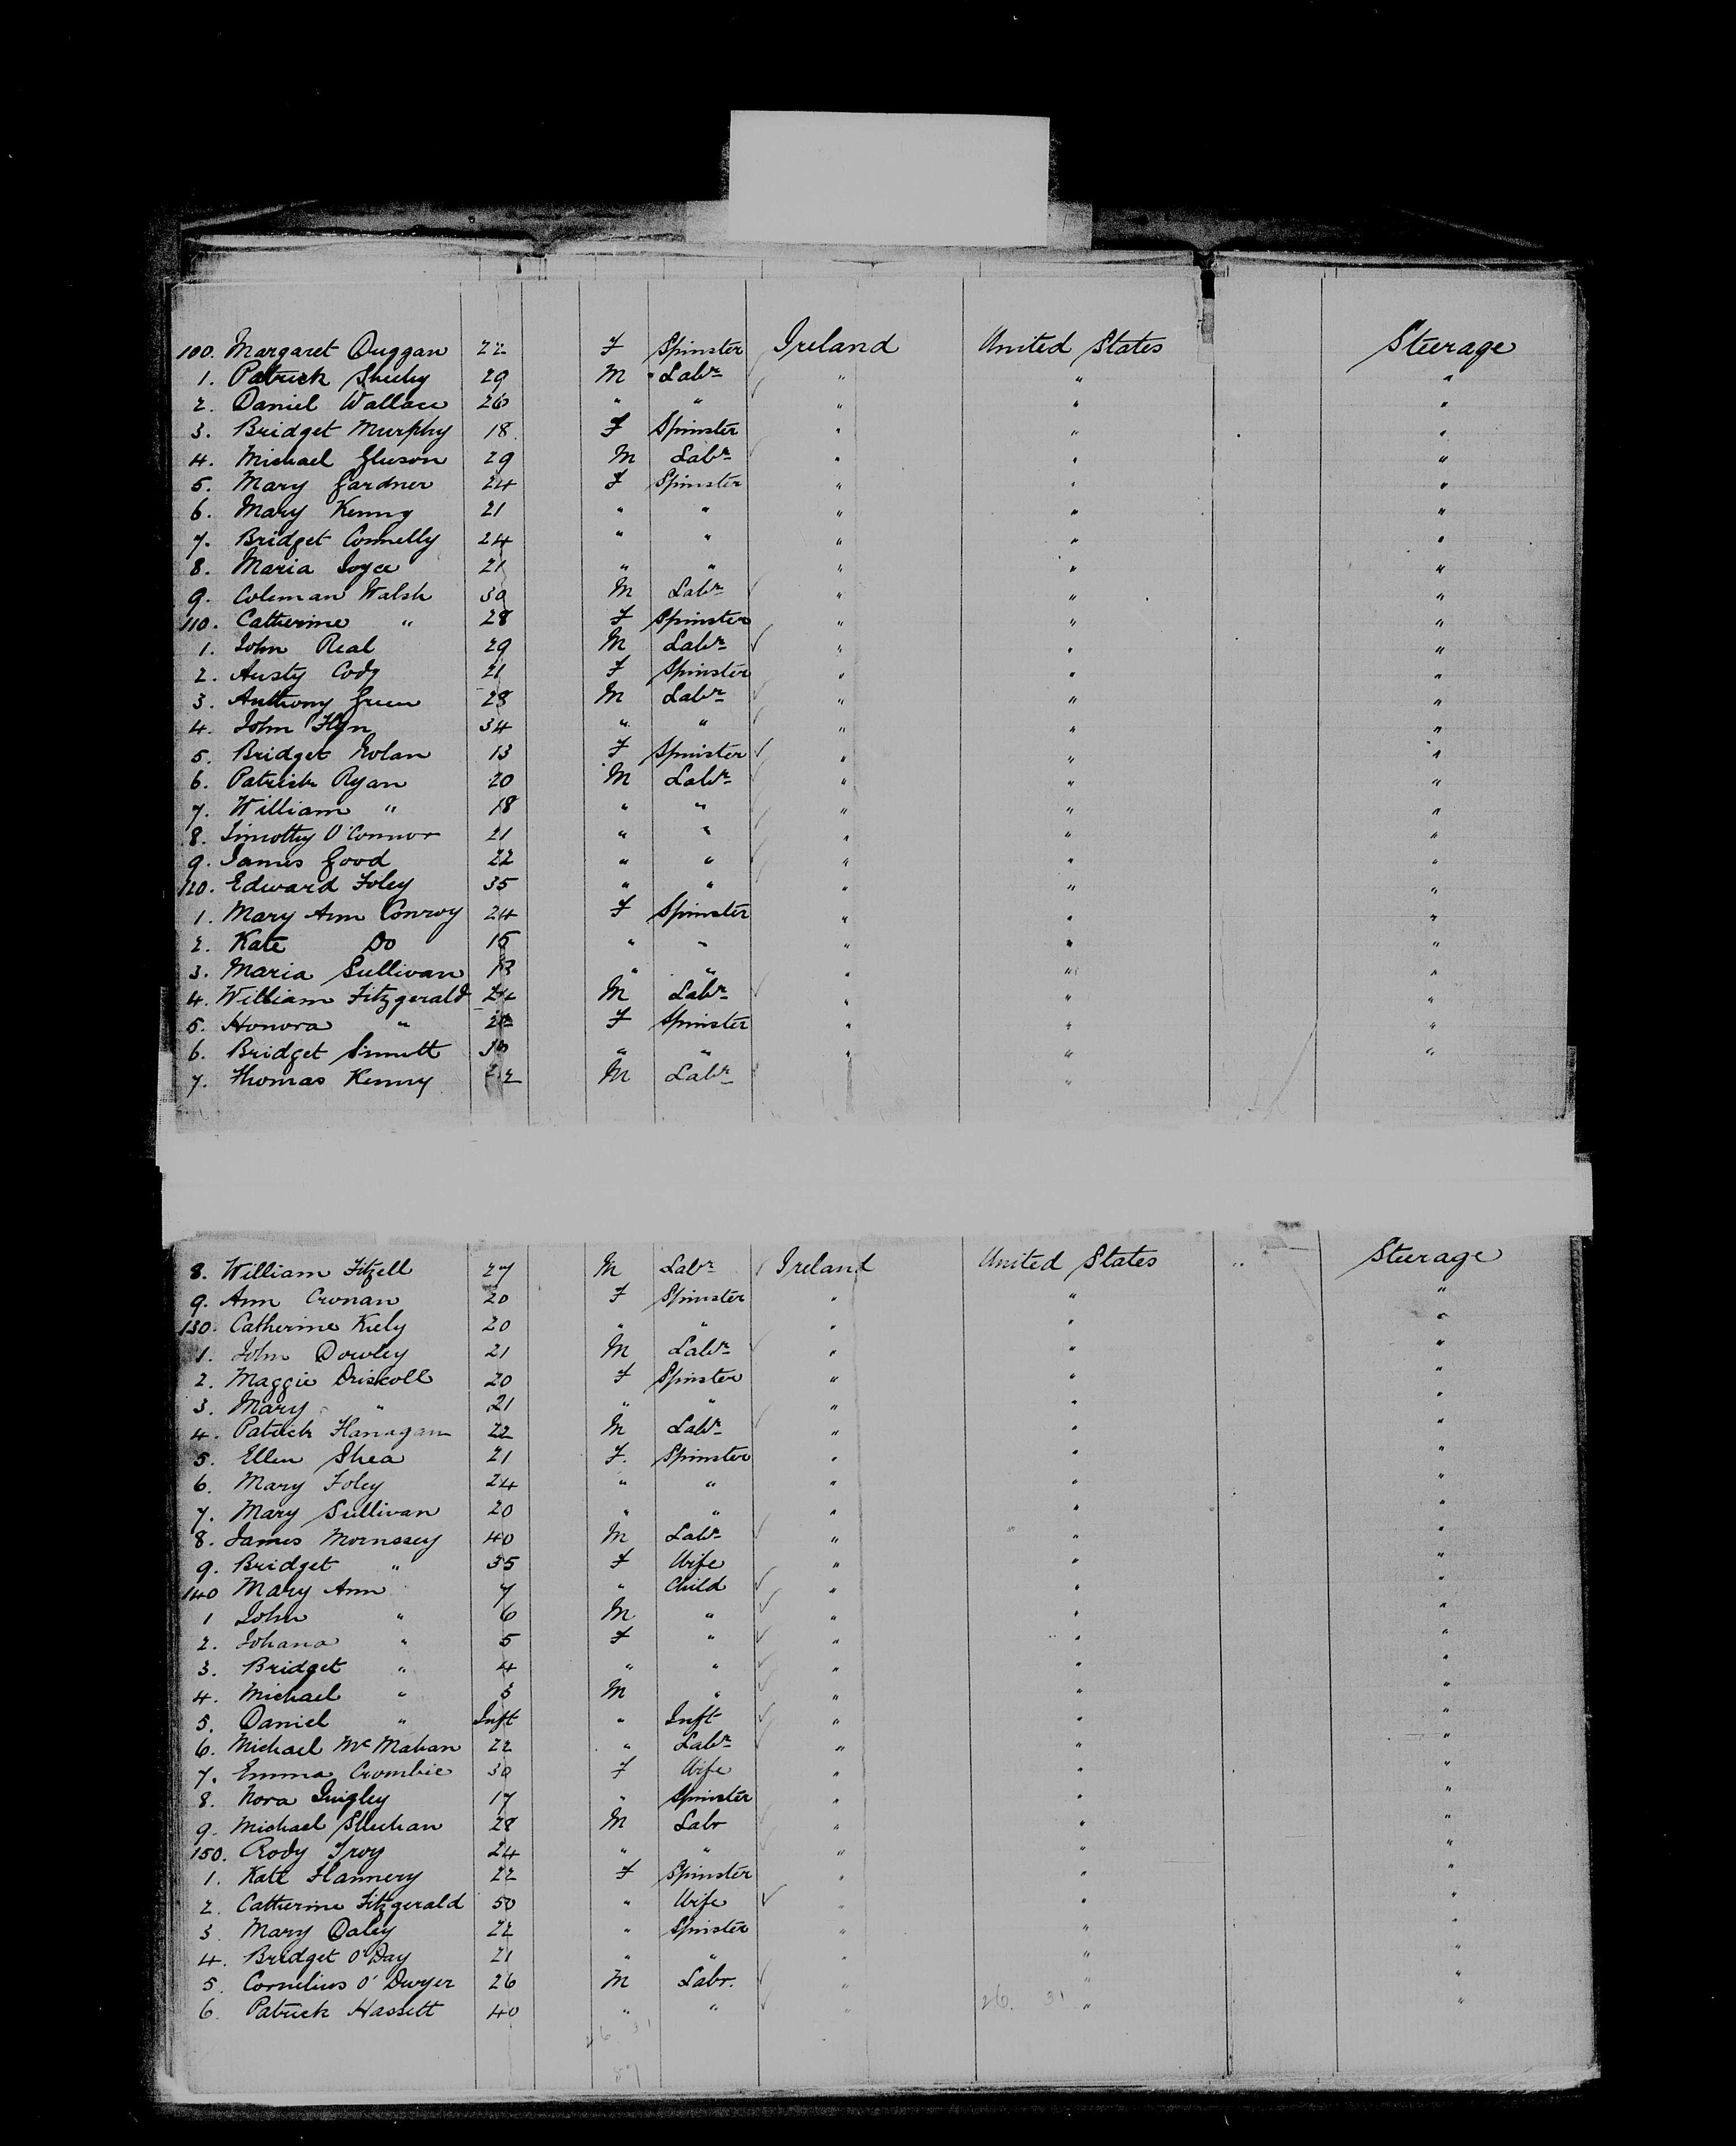 100. Margaret Duggan 22 F Spinster Ireland United States Steerage
1. Patrick Sheehy 29 M Labr " " "
2. Daniel Wallace 26 " " " " "
3. Bridget Murphy 18 F Spinster " " "
4. Michael Gleeson 29 M Labr " " "
5. Mary Gardner 24 F Spinster " " "
6. Mary Kenny 21 " " " " "
7. Bridget Connelly 24 " " " " "
8. Maria Joyce 21 " " " " "
9. Coleman Walsh 30 M Labr " " "
110. Catherine " 28 F Spinster " " "
1. John Real 29 M Labr " " "
2. Austy Cody 21 F Spinster " " "
3. Anthony Green 28 M Labr " " "
4. John Flyn 34 " " " " "
5. Bridget Nolan 13 F Spinster " " "
6. Patrick Ryan 20 M Labr " " "
7. William " 18 " " " " "
8. Timothy O'Connor 21 " " " " "
9. James Good 22 " " " " "
120. Edward Foley 35 " " " " "
1. Mary Ann Conroy 24 F Spinster " " "
2. Kate Do 15 " " " " "
3. Maria Sullivan 13 " " " " "
4. William Fitzgerald 24 M Labr " " "
5. Honora " F Spinster " " "
6. Bridget Sinnott 30 " " " " "
7. Thomas Kenny 22 M Labr "
8. William Fitzell 27 M Labr Ireland United States Steerage
9. Ann Cronan 20 F Spinster " " "
130. Catherine Kiely 20 " " " " "
1. John Dowley 21 M Labr " " "
2. Maggie Driskoll 20 F Spinster " " "
3. Mary " 21 " " " " "
4. Patrick Flanagan 22 M Labr " " "
5. Ellen Shea 21 F. Spinster " " "
6. Mary Foley 24 " " " " "
7. Mary Sullivan 20 " " " " "
8. James Morrissey 40 M Labr " " "
9. Bridget " 35 F Wife " " "
140 Mary Ann 7 " Child " " "
1 John " 6 M " " " "
2. Johana " 5 F " " " "
3. Bridget " 4 " " " " "
4. Michael " 3 M " " " "
5. Daniel " Inft " Inft " " "
6. Michael McMahan 22 " Labr " " "
7. Emma Crombie 30 F Wife " " "
8. Nora Quigley 17 " Spinster " " "
9. Michael Sheehan 28 M Labr " " "
150. Rody Troy 24 " " " " "
1. Kate Flannery 22 F Spinster " " "
2. Catherine Fitzgerald 50 " Wife " " "
3. Mary Daley 22 " Spinster " " "
4. Bridget O'Day 21 " " " " "
5. Cornelius O'Dwyer 26 M Labr. " " "
6. Patrick Hassett 40 " " " 26. 31 " "
26 31